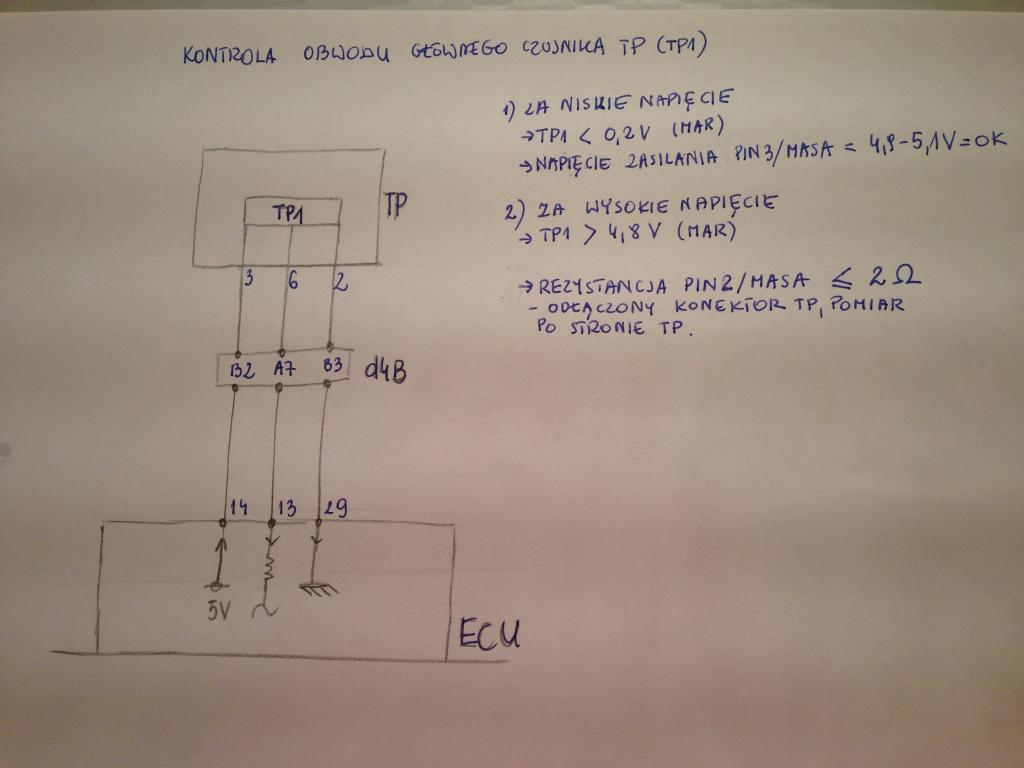 KONTROLA OBWODU GŁÓWNEGO CZUJNIKA TP (TP1)
1) ZA NISKIE NAPIĘCIE
→ TP1 < 0,2V (MAR)
→ NAPIĘCIE ZASILANIA PIN3/MASA = 4,9-5,1V = OK
2) ZA WYSOKIE NAPIĘCIE
→ TP1 > 4,8 V (MAR)
→ REZYSTANCJA PIN2/MASA ≤ 2 Ω
- ODŁĄCZONY KONEKTOR TP, POMIAR
PO STRONIE TP.
TP1
TP
3 6 2
B2 A7 B3
d4B
14 13 29
5V
ECU